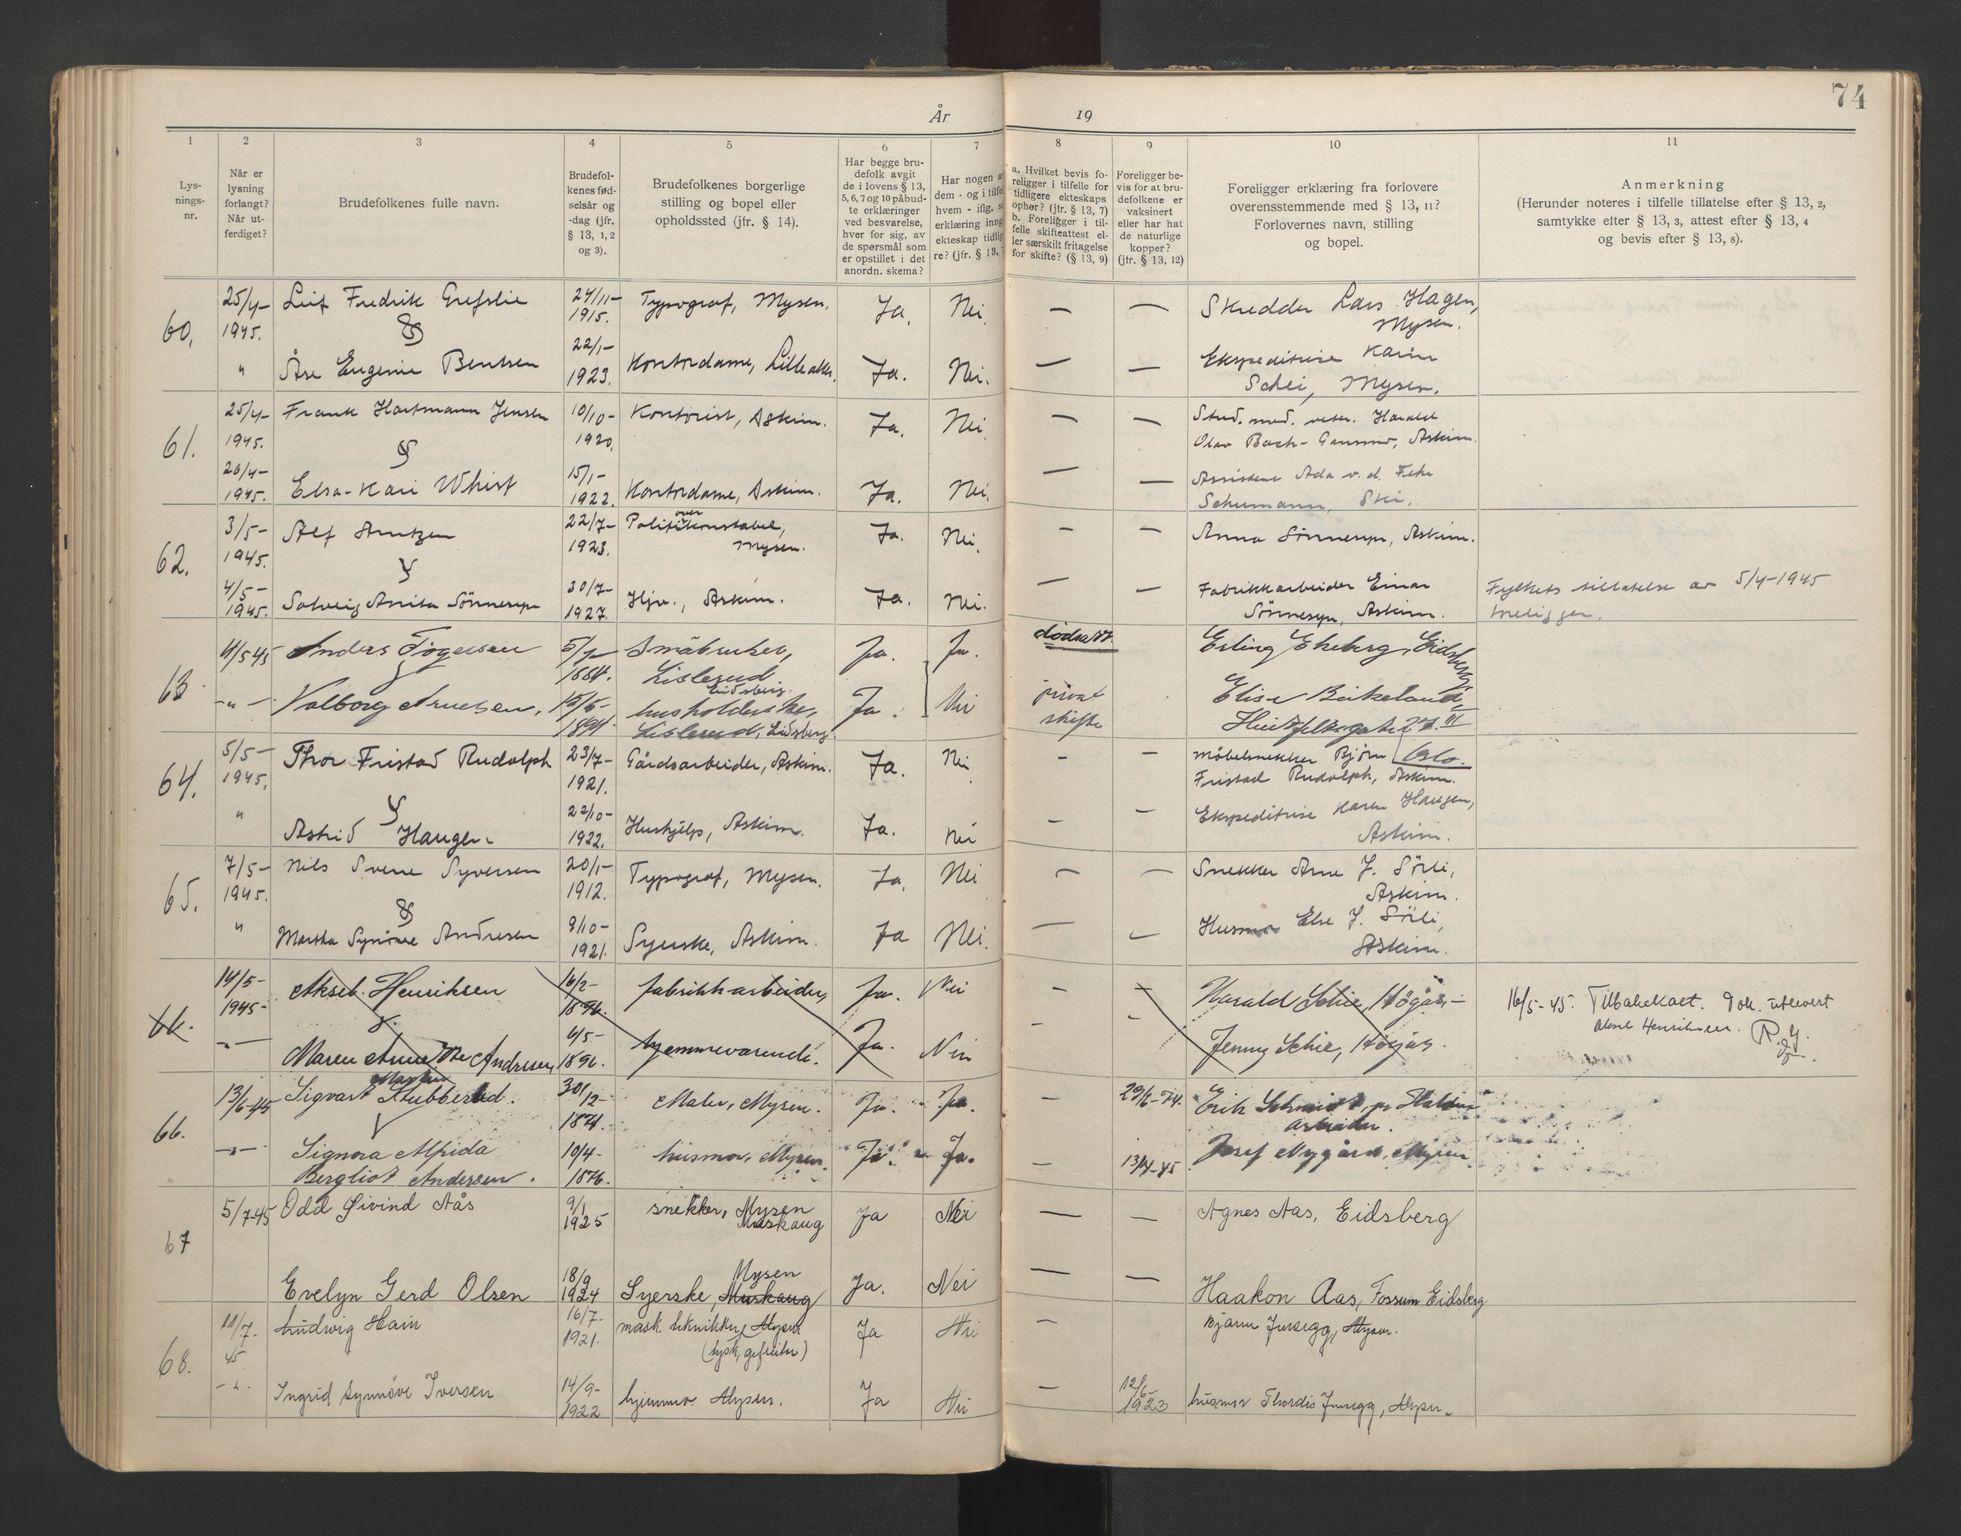 74
År 19
1 2 3 4 5 6 7 8 9 10 11
Lys-
nings-
nr.
Når er
lysning
forlangt?
Når ut-
ferdiget?
Brudefolkenes fulle navn.
Brudefol-
kenes fød-
selsår og
-dag (jfr.
§ 13, 1, 2
og 3).
Brudefolkenes borgerlige
stilling og bopel eller
opholdssted (jfr. § 14).
Har begge bru-
defolk avgit
de i lovens § 13,
5, 6, 7 og 10 påbud-
te erklæringer
ved besvarelse,
hver for sig, av
de spørsmål som
er opstillet i det
anordn. skema?
Har nogen a
dem - og i tilfel
hvem - iflg. s
erklæring inng
ekteskap tidlig
re? (jfr. § 13, 7
a. Hvilket bevis fo-
religger i tilfelle for
tidligere ekteskaps
ophør? (jfr. § 13, 7)
b. Foreligger i til-
felle skifteattest el-
ler særskilt fritagelse
for skifte? (§ 13, 9)
Foreligger be-
vis for at bru-
defolkene er
vaksinert
eller har hat
de naturlige
kopper?
(jfr. § 13, 12)
Foreligger erklæring fra forlovere
overensstemmende med § 13, 11?
Forlovernes navn, stilling
og bopel.
Anmerkning
(Herunder noteres i tilfelle tillatelse efter § 13, 2,
samtykke efter § 13, 3, attest efter § 13, 4
og bevis efter § 13, 8).
60. 25/4- 1945. Leif Fredrik Grefslie 24/11- 1915. Typograf, Mysen. Ja. Nei. — — Skredder Lars Hagen, Mysen.
&
" Åse Eugenie Bentsen 22/1- 1923. Kontordame, Lilleaker. Ja. Nei. — — Ekspeditrise Karin Schei, Mysen.
61. 25/4- 1945. Frank Hartmann Jensen 10/10- 1920. Kontorist, Askim. Ja. Nei. — — Stud. med. veter. Harald Olav Bach-Gansmo, Askim.
&
20/4- 1945. Elsa-Kari Whist 15/1- 1922. Kontordame, Askim. Ja. Nei. — — Assistent Ada v. d. Fehr Schumann, Ski.
62. 3/5- 1945. Alf Arntzen 22/7- 1923. Politioverkonstabel, Mysen. Ja. Nei. — — Anna Sønnesyn, Askim.
4/5- 1945. Solveig Anita Sønnesyn 30/7- 1927. Hjv., Askim. Ja. Nei. — — Fabrikkarbeider Einar Sønnesyn, Askim. Fylkets tillatelse av 5/4-1945 foreligger.
63 4/5 45 Anders Togersen 5/7 1884. Småbruker, Lislerud Eidsberg. Ja. Ja. dødsatt. Erling Ekeberg, Eidsberg,
-"- Valborg Arnesen, 15/6- 1894 husholderske, Lislerud, Eidsberg. Ja. Nei privat skifte Elise Birkeland, 27 III Oslo.
64. 5/5- 1945. Thor Fristad Rudolph 23/7- 1921. Gårdsarbeider, Askim. Ja. Nei. — — Møbelsnekker Bjørn Fristad Rudolph, Askim.
" Astrid Haugen 22/10- 1922. Hushjelp, Askim. Ja. Nei — — Ekspeditrise Karen Haugen, Askim.
65. 7/5- 1945. Nils Svene Syversen 20/1- 1912. Typograf, Mysen. Ja. Nei — — Snekker Arne J. Sørli, Askim.
&
" Martha Synnøve Andresen 9/10- 1921. Syerske, Askim. Ja Nei. — — Husmor Else J. Sørli, Askim.
66. 14/5- 1945- Aksel Henriksen 16/2- 1896. fabrikkarbeider, Ja. Nei — — Harald Schie, Høgås- 16/5-45. Tilbakekalt. utlevert Aksel Henriksen.
-"- Maren Andresen, 6/5- 1896. hjemmeværende. Ja. Nei — — Jenny Schie, Høgås.
66. 13/6-45 Sigvart Martin Stubberud. 30/12- 1874. Maler, Mysen. Ja. Ja. — 29/6-74. Erik Schmidt, Halden arbeider.
-"- Signora Alfrida Bergliot Andersen. 10/4- 1876. husmor, Mysen. Ja. Ja. — 13/4-45 Josef Nygård, Mysen
67 5/7-45 Odd Øivind Aås 9/1 1925 snekker, Mysen Muskaug Ja Nei — — Agnes Aas, Eidsberg
Evelyn Gerd Olsen 18/9 1924 Syerske, Mysen Muskaug Ja. Nei — — Haakon Aas, Fossum Eidsberg
68. 11/7. 45 Ludwig Hain 16/7- 1921. mask. tekniker, Mysen (tysk, gefreiter) Ja Nei — Bjarne Junsegg, Mysen.
-"- Ingrid Synnøve Iversen 14/9- 1922 hjemmev. Mysen. Ja Nei — 12/6- 1923 husmor Thordis Junsegg, Mysen.